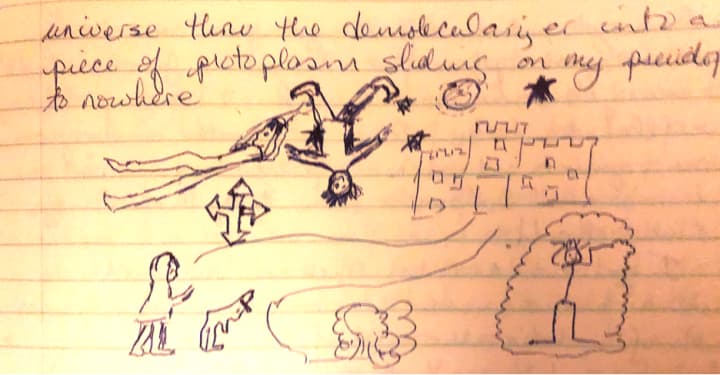 universe thru the demolecularizer into a
piece of protoplasm sliding on my pseudop
to nowhere